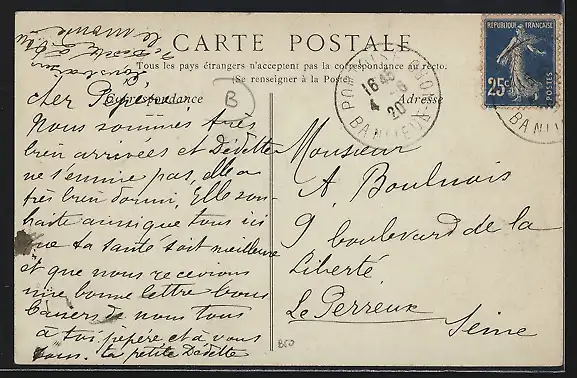 CARTE POSTALE
Tous les pays étrangers n'acceptent pas la correspondance au recto.
(Se renseigner à la Poste)
Correspondance
Adresse
B
RÉPUBLIQUE FRANÇAISE
25c
POSTES
16 45
4 - 6
20
BANLIEUE
BANLI
le monde
Dédette
Cher Pépère
Nous sommes très
bien arrivées et Dédette
ne s'ennuie pas, elle a
très bien dormi, Elle sou-
haite ainsi que tous ici
que ta santé soit meilleure
et que nous recevions
une bonne lettre bons
baisers de nous tous
à toi, pépère et à vous
tous. ta petite Dédette
Monsieur
A. Boulnois
9 boulevard de la
Liberté
Le Perreux
Seine
B50